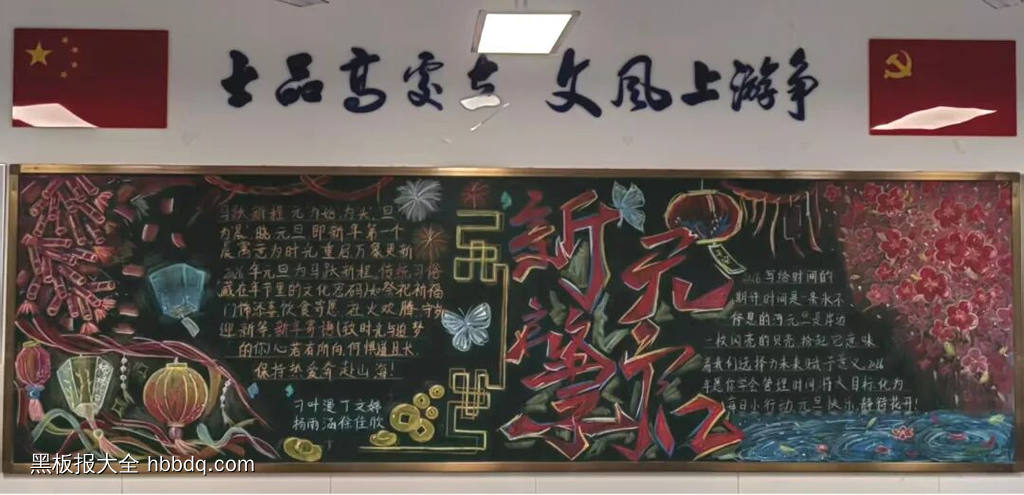 士品高处立 文风上游争
新序 元章
马跃新程 元为始,为大,旦
为晨,晓。元旦即新年第一个
晨,寓意为时元重启万象更新
2026年元旦为马跃新程,传统习俗
藏在年节里的文化密码,如祭祀祈福
门饰添喜 饮食寄愿 社火欢腾 守岁
迎新等 新年寄语(致时光与追梦
的你)心若有所向,何惧道且长,
保持热爱奔赴山海!
刁叶漫 丁文婷
杨雨涵 徐佳欣
2026写给时间的
期许时间是一条永不
停息的河元旦是岸边
一枚闪亮的贝壳,拾起它意味
着我们选择为未来赋予意义,2026
年愿你学会管理时间,将大目标化为
每日小行动,元旦快乐,静待花开!
黑板报大全 hbbdq.com